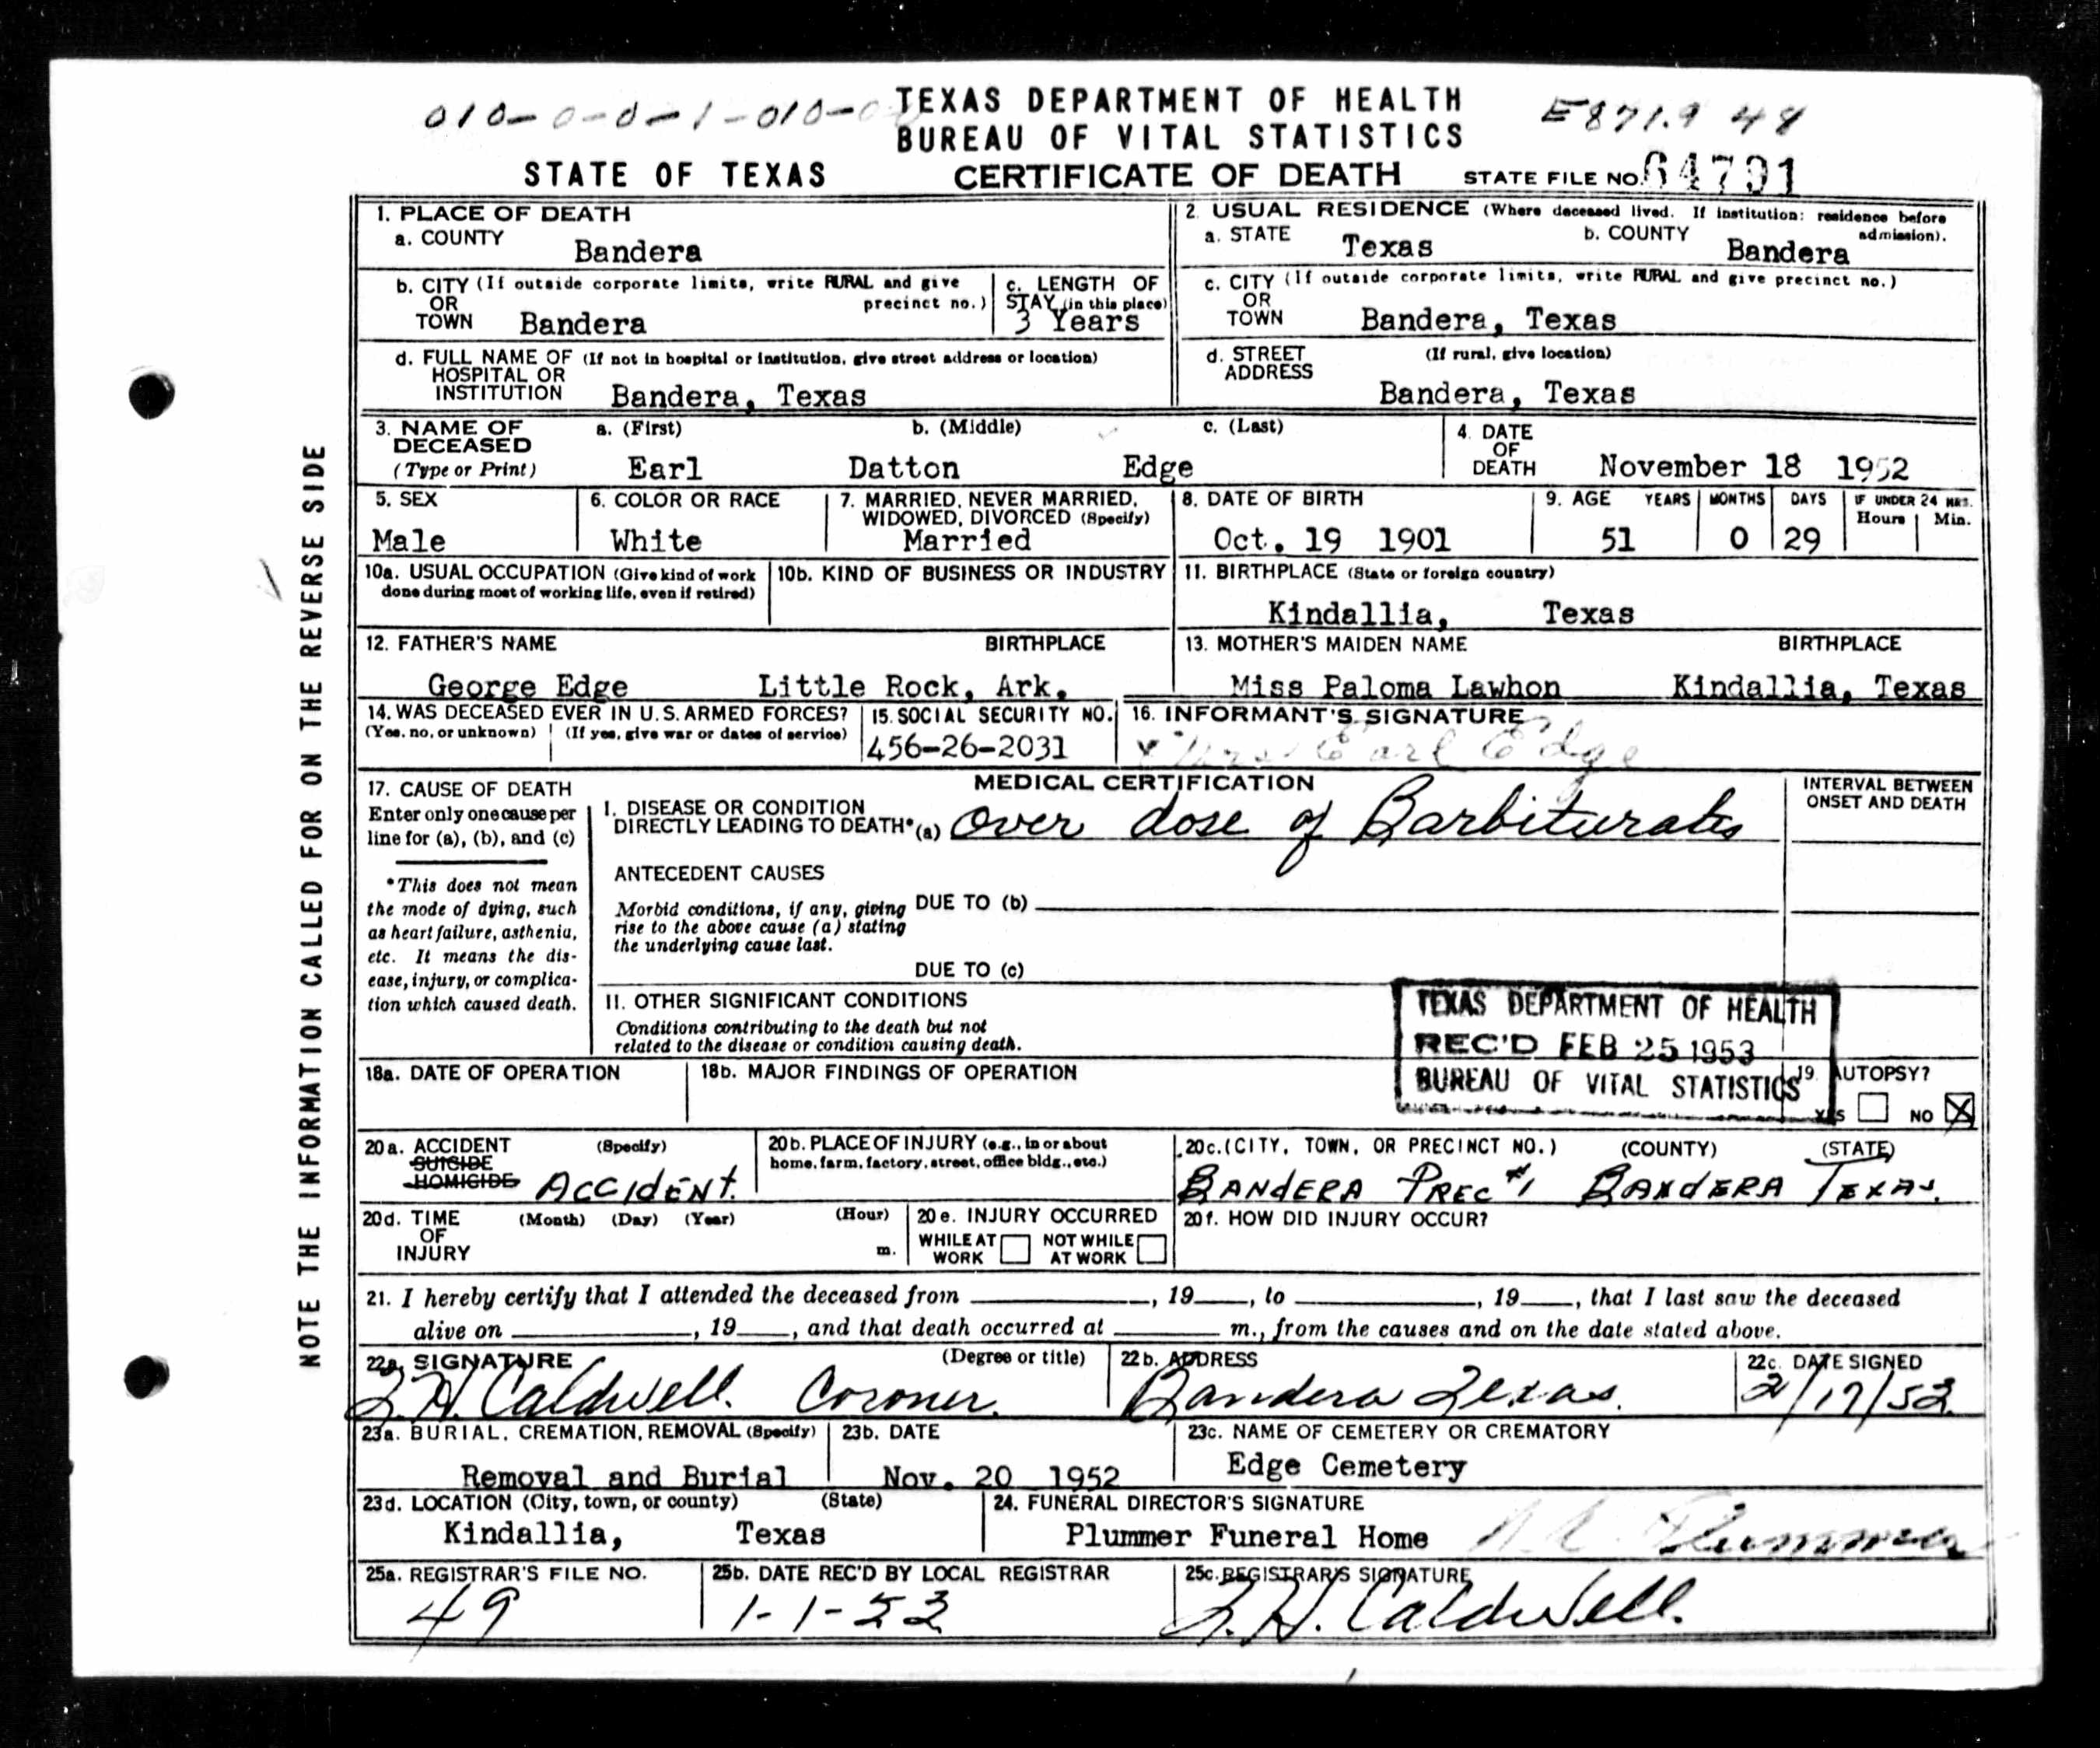 010-0-0-1-010-0
TEXAS DEPARTMENT OF HEALTH
E871.9 48
BUREAU OF VITAL STATISTICS
STATE OF TEXAS CERTIFICATE OF DEATH STATE FILE NO. 64791
NOTE THE INFORMATION CALLED FOR ON THE REVERSE SIDE
1. PLACE OF DEATH
a. COUNTY Bandera
2. USUAL RESIDENCE (Where deceased lived. If institution: residence before admission).
a. STATE Texas b. COUNTY Bandera
b. CITY (If outside corporate limits, write RURAL and give precinct no.)
OR
TOWN Bandera
c. LENGTH OF
STAY (in this place)
3 Years
c. CITY (If outside corporate limits, write RURAL and give precinct no.)
OR
TOWN Bandera, Texas
d. FULL NAME OF (If not in hospital or institution, give street address or location)
HOSPITAL OR
INSTITUTION Bandera, Texas
d. STREET (If rural, give location)
ADDRESS
Bandera, Texas
3. NAME OF a. (First) b. (Middle) c. (Last)
DECEASED
(Type or Print) Earl Datton Edge
4. DATE
OF
DEATH November 18 1952
5. SEX
Male
6. COLOR OR RACE
White
7. MARRIED, NEVER MARRIED,
WIDOWED, DIVORCED (Specify)
Married
8. DATE OF BIRTH
Oct. 19 1901
9. AGE YEARS MONTHS DAYS IF UNDER 24 HRS.
Hours Min.
51 0 29
10a. USUAL OCCUPATION (Give kind of work
done during most of working life, even if retired)
10b. KIND OF BUSINESS OR INDUSTRY
11. BIRTHPLACE (State or foreign country)
Kindallia, Texas
12. FATHER'S NAME BIRTHPLACE
George Edge Little Rock, Ark.
13. MOTHER'S MAIDEN NAME BIRTHPLACE
Miss Paloma Lawhon Kindallia, Texas
14. WAS DECEASED EVER IN U.S. ARMED FORCES?
(Yes, no, or unknown) (If yes, give war or dates of service)
15. SOCIAL SECURITY NO.
456-26-2031
16. INFORMANT'S SIGNATURE
x Mrs Earl Edge
17. CAUSE OF DEATH
Enter only one cause per
line for (a), (b), and (c)
*This does not mean
the mode of dying, such
as heart failure, asthenia,
etc. It means the dis-
ease, injury, or complica-
tion which caused death.
MEDICAL CERTIFICATION
INTERVAL BETWEEN
ONSET AND DEATH
I. DISEASE OR CONDITION
DIRECTLY LEADING TO DEATH* (a) Over dose of Barbiturates
ANTECEDENT CAUSES
Morbid conditions, if any, giving
rise to the above cause (a) stating
the underlying cause last.
DUE TO (b)
DUE TO (c)
II. OTHER SIGNIFICANT CONDITIONS
Conditions contributing to the death but not
related to the disease or condition causing death.
TEXAS DEPARTMENT OF HEALTH
REC'D FEB 25 1953
BUREAU OF VITAL STATISTICS
18a. DATE OF OPERATION
18b. MAJOR FINDINGS OF OPERATION
19. AUTOPSY?
YES NO X
20a. ACCIDENT (Specify)
SUICIDE
HOMICIDE Accident.
20b. PLACE OF INJURY (e.g., in or about
home, farm, factory, street, office bldg., etc.)
20c. (CITY, TOWN, OR PRECINCT NO.) (COUNTY) (STATE)
Bandera Prec #1 Bandera Texas.
20d. TIME (Month) (Day) (Year) (Hour)
OF
INJURY m.
20e. INJURY OCCURRED
WHILE AT NOT WHILE
WORK AT WORK
20f. HOW DID INJURY OCCUR?
21. I hereby certify that I attended the deceased from , 19 , to , 19 , that I last saw the deceased
alive on , 19 , and that death occurred at m., from the causes and on the date stated above.
22a. SIGNATURE (Degree or title)
Caldwell. Coroner.
22b. ADDRESS
Bandera Texas.
22c. DATE SIGNED
2/17/53
23a. BURIAL, CREMATION, REMOVAL (Specify)
Removal and Burial
23b. DATE
Nov. 20 1952
23c. NAME OF CEMETERY OR CREMATORY
Edge Cemetery
23d. LOCATION (City, town, or county) (State)
Kindallia, Texas
24. FUNERAL DIRECTOR'S SIGNATURE
Plummer Funeral Home Plummer
25a. REGISTRAR'S FILE NO.
49
25b. DATE REC'D BY LOCAL REGISTRAR
1-1-53
25c. REGISTRAR'S SIGNATURE
Caldwell.